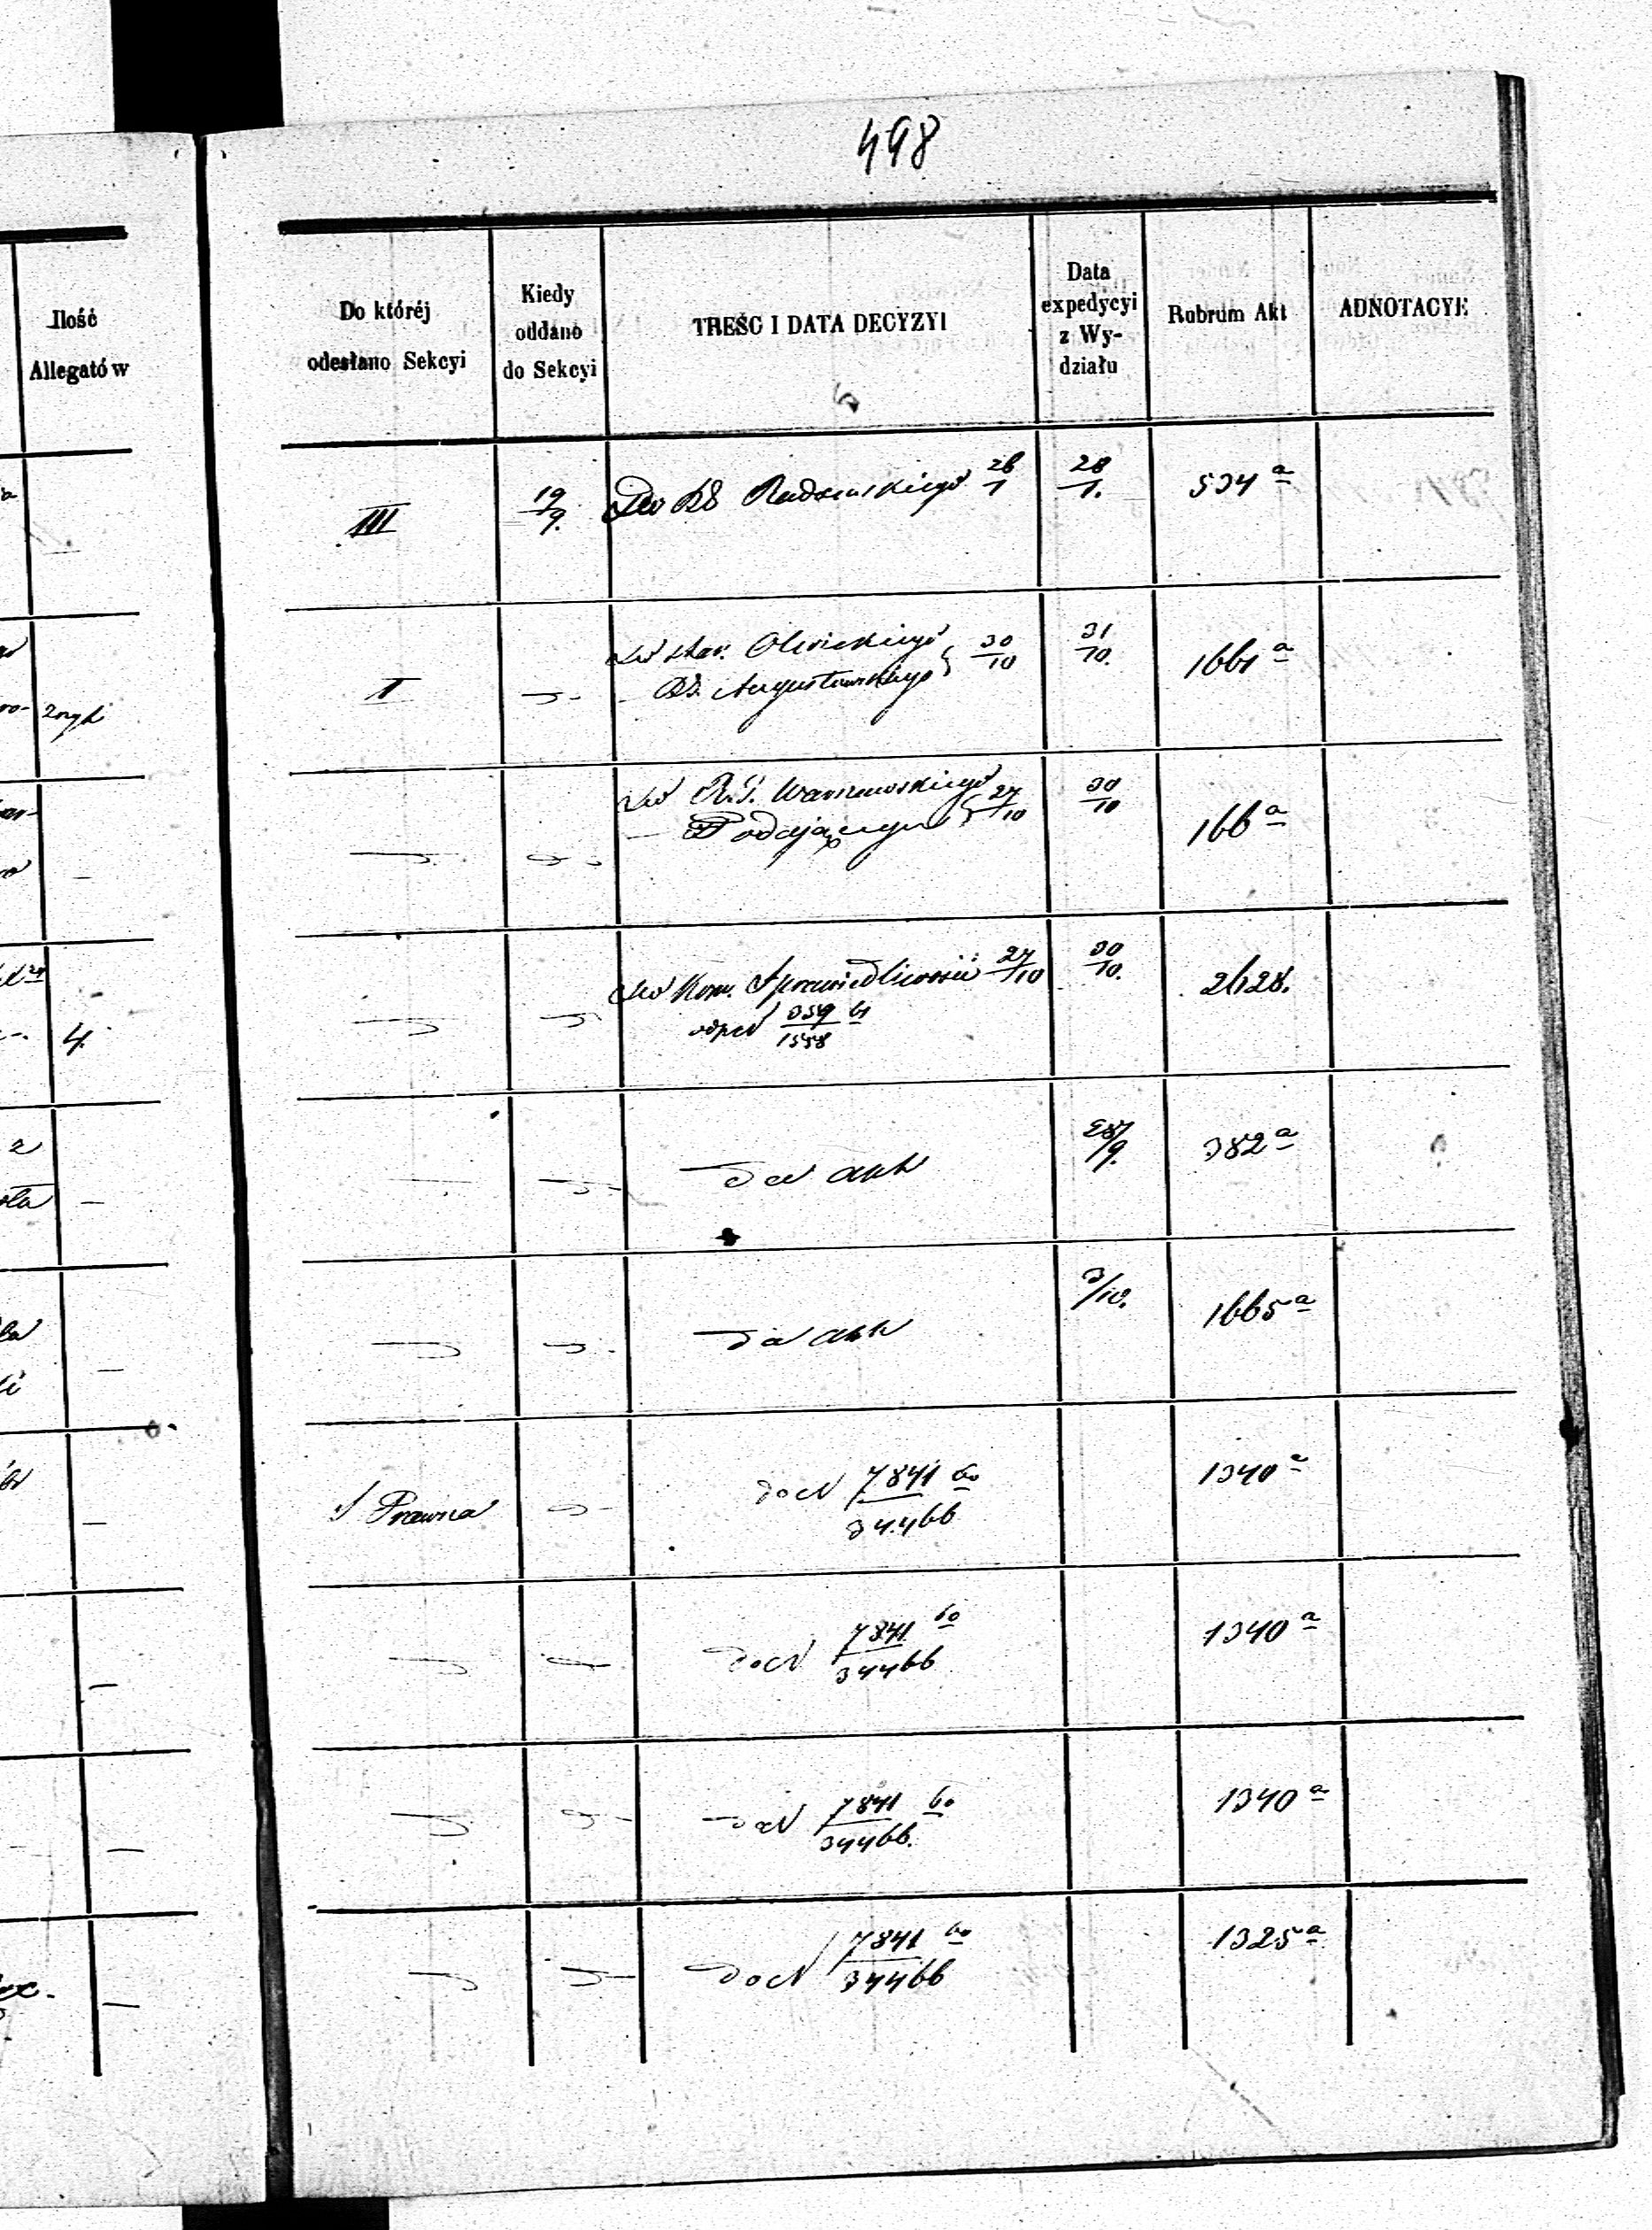 498
Ilość
Allegatów
Do któréj
odesłano Sekcyi
Kiedy
oddano
do Sekcyi
TREŚC I DATA DECYZYI
Data
expedycyi
z Wy-
działu
Rubrum Akt
ADNOTACYE
III
19/9.
Do RS Radomskiego 26/1
28/1.
534 a
I
Olwickiego
RS. Augustowskiego 30/10
31/10.
1661 a
Do R.S. Warszawskiego
— Podającym 27/10
30/10
166 a
4.
Do Kom. Sprawiedliwości 27/10
359/1558
30/10.
2628.
do akt
/9.
382 a
do akt
3/10.
1665 a
S Prawna
do N 7841/34466
1340 a
do N 7841/34466
1340 a
do N 7841/34466.
1340 a
do N 7841/34466
1325 a